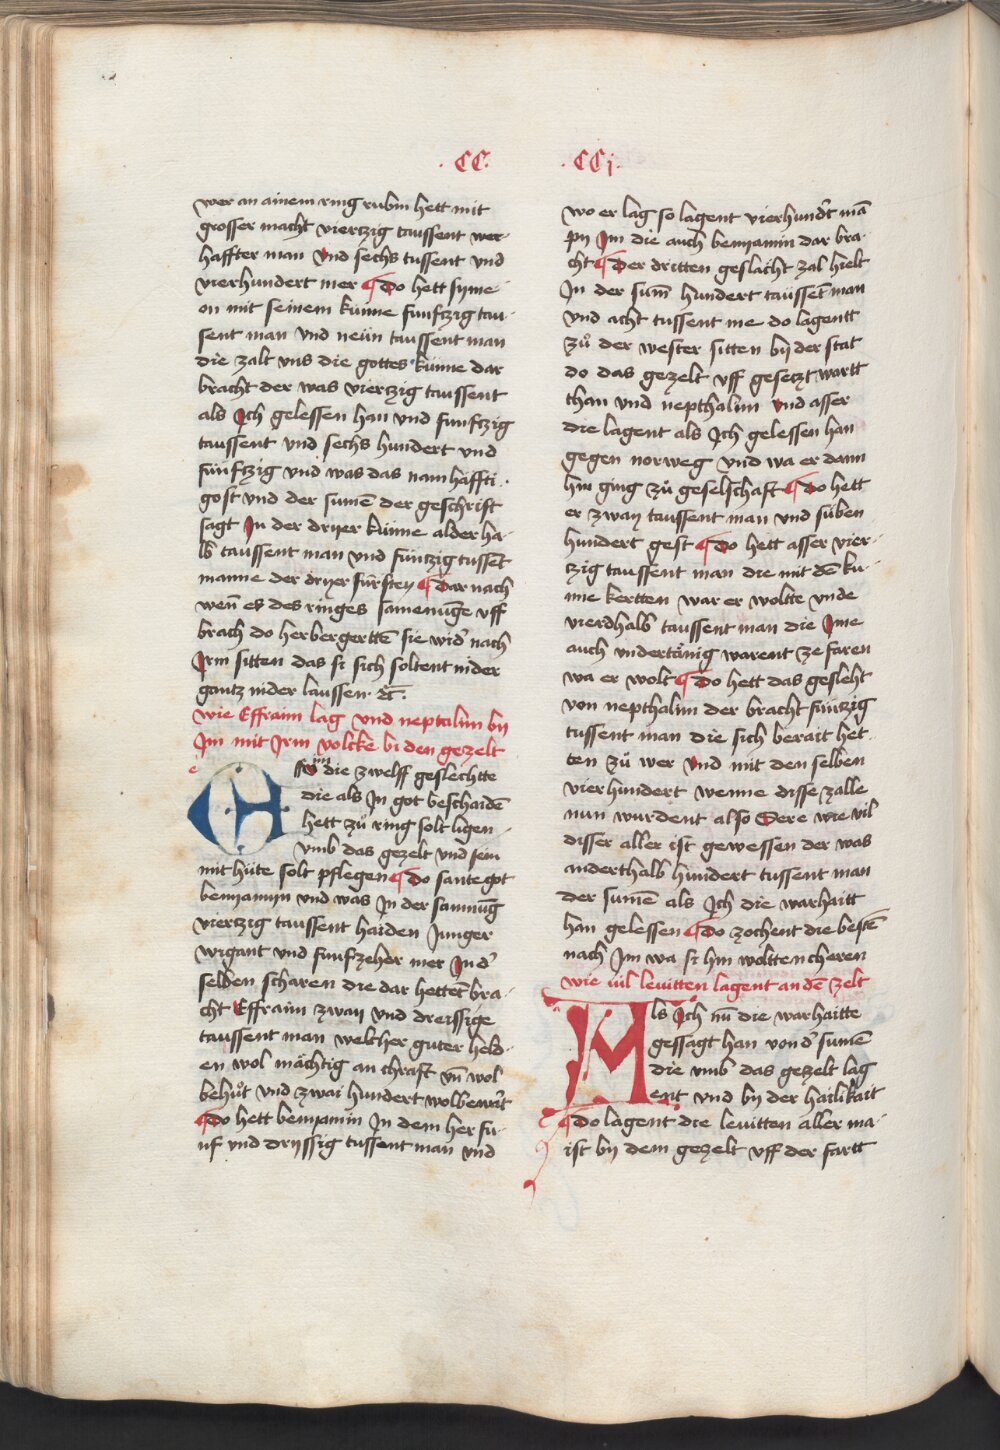 CC.
wer an ainem ring rubin hett mit
grosser macht viertzig taussent wer-
haffter man Vnd sechs tussent vnd
vierhundert mer ¶ Do hett syme-
on mit seinem künne funftzig tau-
sent man vnd neün taussent man
die zalt vns die gottes künne dar
bracht der was viertzig taussent
als Ich gelessen han vnd funftzig
taussent vnd sechs hundert vnd
fünftzig vnd was das nam haffti
gost vnd der sumē der geschrift
sagt In der dryer künne alder ha-
lb taussent man vnd fünzig tussēt
manne der dryer fürsten ¶ Dar nach
wen̄ es des ringes samenūge vff
brach do herbergertē sie wid' nach
Irm sitten das si sich soltent nider
gantz nider laussen
wie Effraim lag vnd neptalim by
Im mit Irm volcke bi den gezelt
die zwelff geslechtte
die als In got beschaidē
hett zů ring solt ligen
vmb das gezelt vnd sein
mit hüte solt pflegen ¶ Do sante got
benyamyn vnd was In der samnūg
viertzig taussent haiden Junger
wigant vnd funfzeher mer In d'
selben scharen die dar hettēt bra-
cht Effraim zway vnd dreissige
taussent man welcher guter held-
en wol mächtig an chraft vn̄ wol
behůt vnd zwai hundert wolbewart
¶ Do hett benyamin In dem her fu-
nf vnd dryssig tussent man vnd
CCj.
wo er lag so lagent vierhundt mā
py Im die auch benyamin dar bra-
cht ¶ Der dritten geslächt zal hielt
In der sum̄ hundert taussēt man
vnd acht tussent me do lagentt
zů der wester sitten by der stat
do das gezelt vff gesetzt wartt
than vnd nepthalim Vnd asser
die lagent als Ich gelessen han
gegen norweg vnd wa er dann
hin ging zů geselschaft ¶ Do hett
er zway taussent man vnd süben
hundert gest ¶ Do hett asser vier-
zig taussent man die mit dē kü-
nne kertten war er woltte vnde
vierdhalb taussent man die Ime
auch vndertänig warent ze faren
wa er wolt ¶ Do hett das gesleht
von nepthalim der bracht fünzig
tussent man die sich berait het-
ten zů wer Vnd mit den selben
vierhundert wenne disse zalle
nun wurdent also Dere wie vil
disser aller ist gewessen der was
anderthalb hundert tussent man
der sumē als Ich die warhaitt
han gelessen ¶ Do zochent die bestē
nach Im wa si hin woltten cheren
wie vil leuitten lagent an dē zelt
Als Ich nū die warhaitte
gessagt han von d' sumē
die vmb das gezelt lag
ent vnd by der hailikait
¶ Do lagent die leuitten aller ma-
ist by dem gezelt vff der fartt